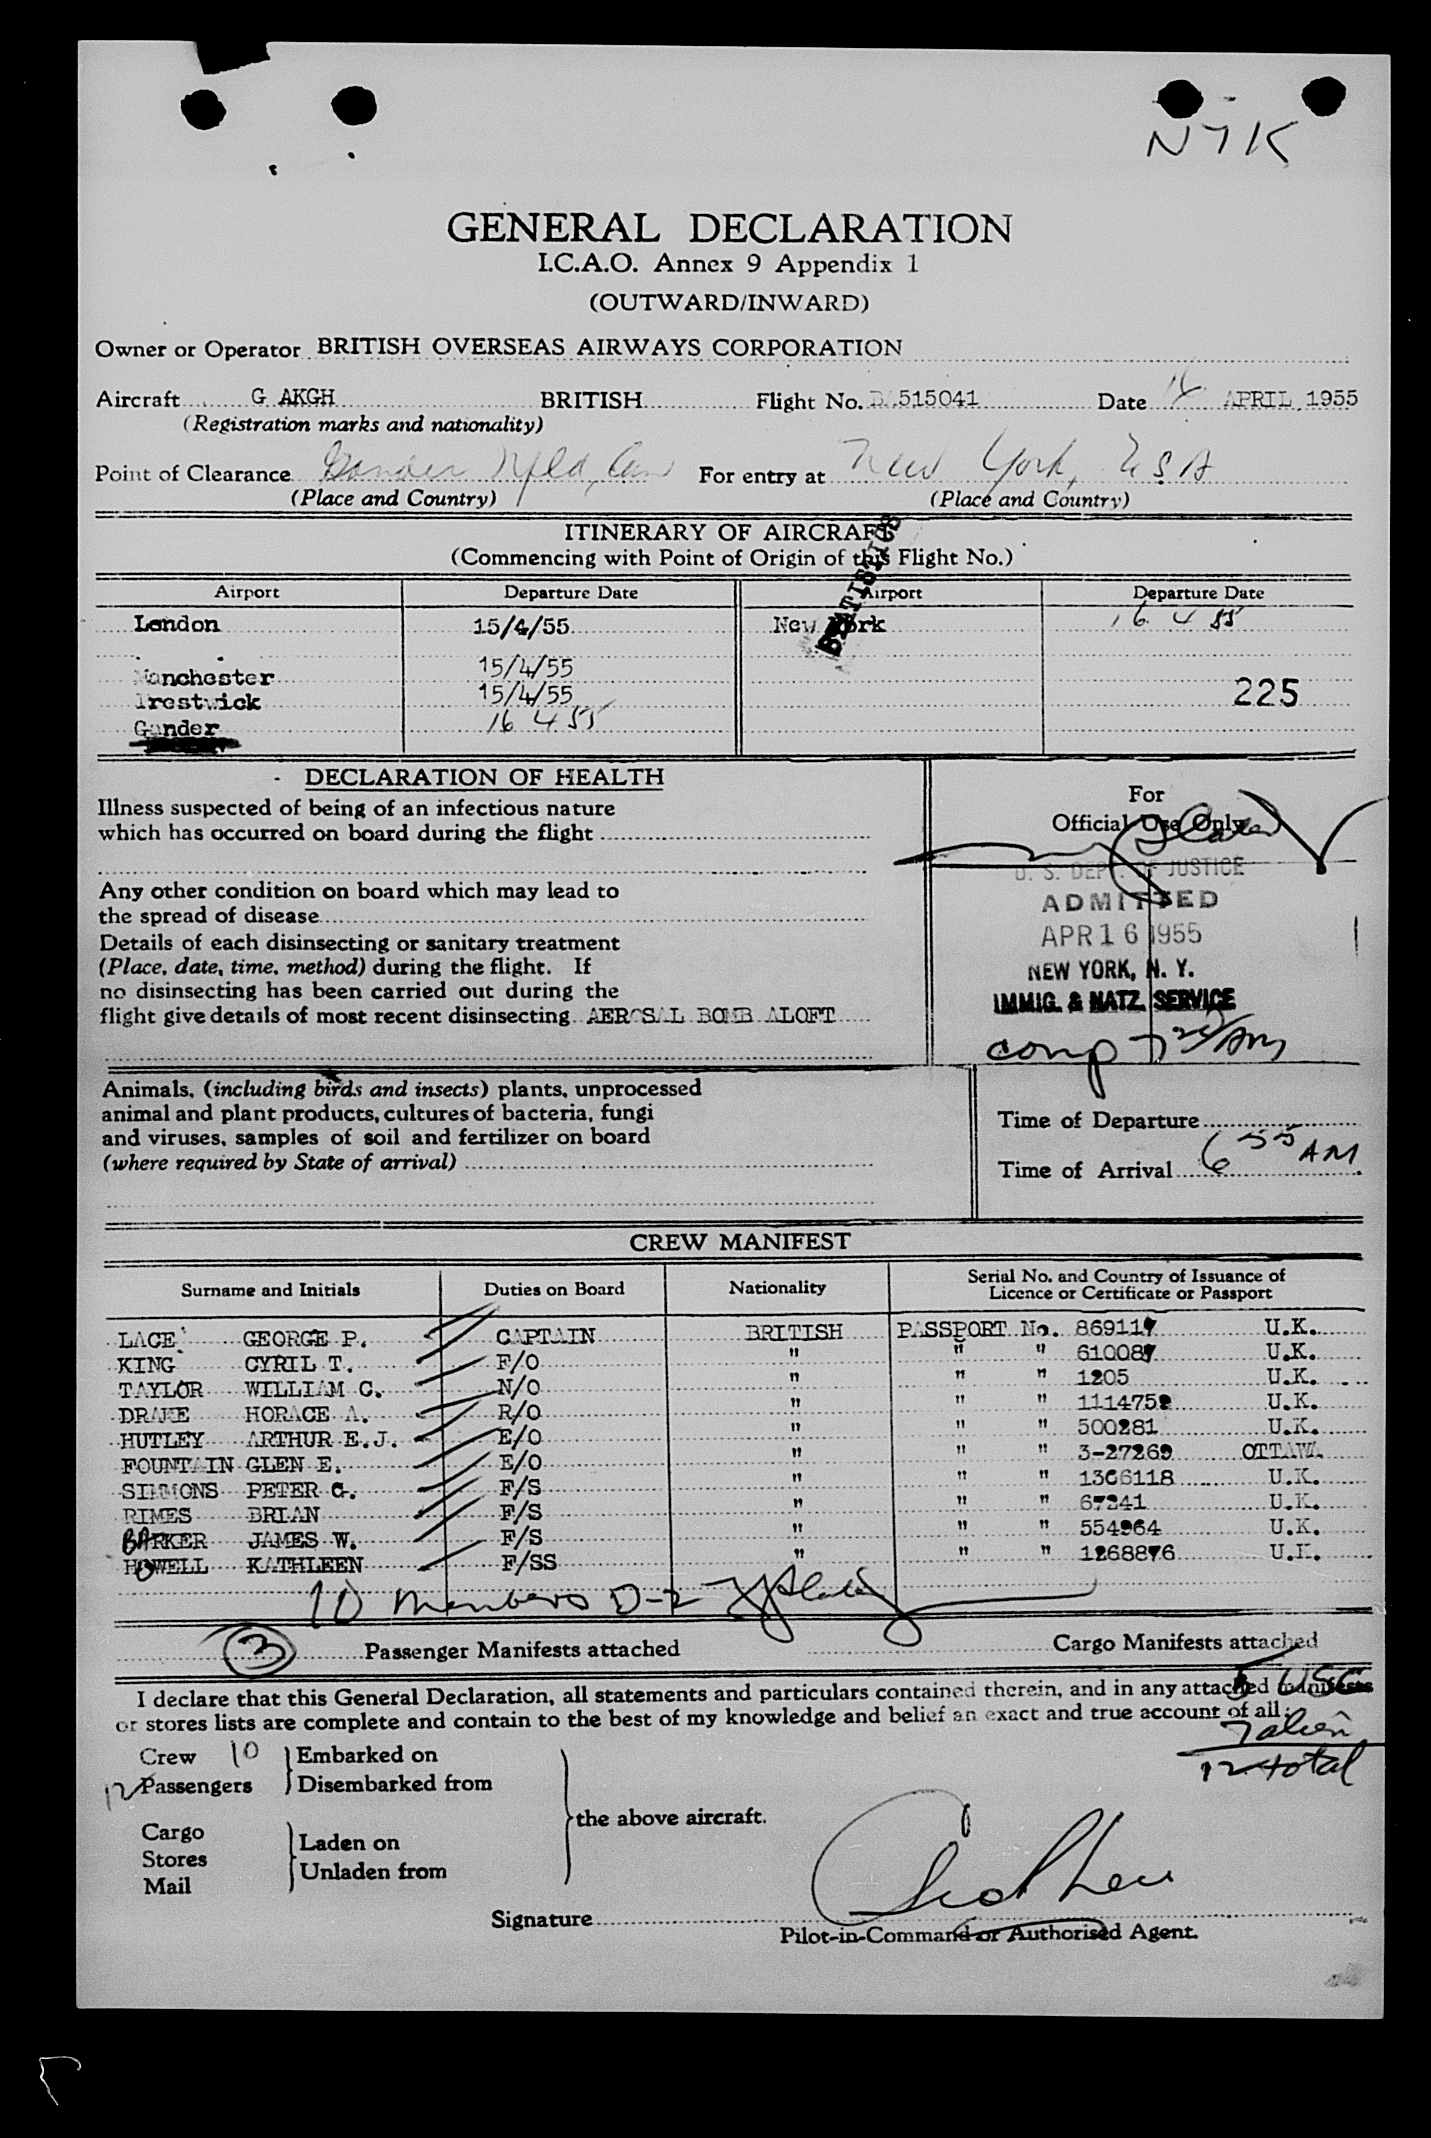 NYK
GENERAL DECLARATION
I.C.A.O. Annex 9 Appendix 1
(OUTWARD/INWARD)
Owner or Operator BRITISH OVERSEAS AIRWAYS CORPORATION
Aircraft G AKGH BRITISH Flight No. BA515041 Date 16 APRIL 1955
(Registration marks and nationality)
Point of Clearance Gander Nfld, Can For entry at New York, U S A
(Place and Country) (Place and Country)
ITINERARY OF AIRCRAFT
(Commencing with Point of Origin of this Flight No.)
STATISTICS
Airport Departure Date Airport Departure Date
London 15/4/55 New York 16 4 55
Manchester 15/4/55
Prestwick 15/4/55 225
Gander 16 4 55
DECLARATION OF HEALTH
Illness suspected of being of an infectious nature
which has occurred on board during the flight
Any other condition on board which may lead to
the spread of disease
Details of each disinsecting or sanitary treatment
(Place, date, time, method) during the flight. If
no disinsecting has been carried out during the
flight give details of most recent disinsecting AEROSAL BOMB ALOFT
For
Official Use Only
U. S. DEPT. OF JUSTICE
ADMITTED
APR 16 1955
NEW YORK, N. Y.
IMMIG. & NATZ. SERVICE
comp 7 25/AM
Animals, (including birds and insects) plants, unprocessed
animal and plant products, cultures of bacteria, fungi
and viruses, samples of soil and fertilizer on board
(where required by State of arrival)
Time of Departure
Time of Arrival 6 55 AM
CREW MANIFEST
Surname and Initials Duties on Board Nationality Serial No. and Country of Issuance of
Licence or Certificate or Passport
LACE GEORGE P. CAPTAIN BRITISH PASSPORT No. 869117 U.K.
KING CYRIL T. F/O " " " 610087 U.K.
TAYLOR WILLIAM C. N/O " " " 1205 U.K.
DRAKE HORACE A. R/O " " " 1114752 U.K.
HUTLEY ARTHUR E.J. E/O " " " 500281 U.K.
FOUNTAIN GLEN E. E/O " " " 3-27269 OTTAWA
SIMMONS PETER G. F/S " " " 1366118 U.K.
RIMES BRIAN F/S " " " 67241 U.K.
BARKER JAMES W. F/S " " " 554964 U.K.
HOWELL KATHLEEN F/SS " " " 1268876 U.K.
10 Members D-2
3 Passenger Manifests attached Cargo Manifests attached
I declare that this General Declaration, all statements and particulars contained therein, and in any attached manifests
or stores lists are complete and contain to the best of my knowledge and belief an exact and true account of all:
5 USC
7 alien
12 total
Crew 10 Embarked on
12 Passengers Disembarked from
the above aircraft.
Cargo
Stores
Mail
Laden on
Unladen from
Signature
Pilot-in-Command or Authorised Agent.